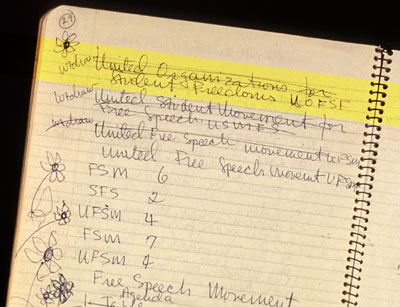 29
wtdraw United Organizations for
Student Freedoms UOFSF
wtdraw United Student Movement for
Free Speech USMFS
wtdraw United Free Speech movement UFSM
United Free Speech Movement UFSM
FSM 6
SFS 2
UFSM 4
FSM 7
UFSM 4
Free Speech Movement
Agenda